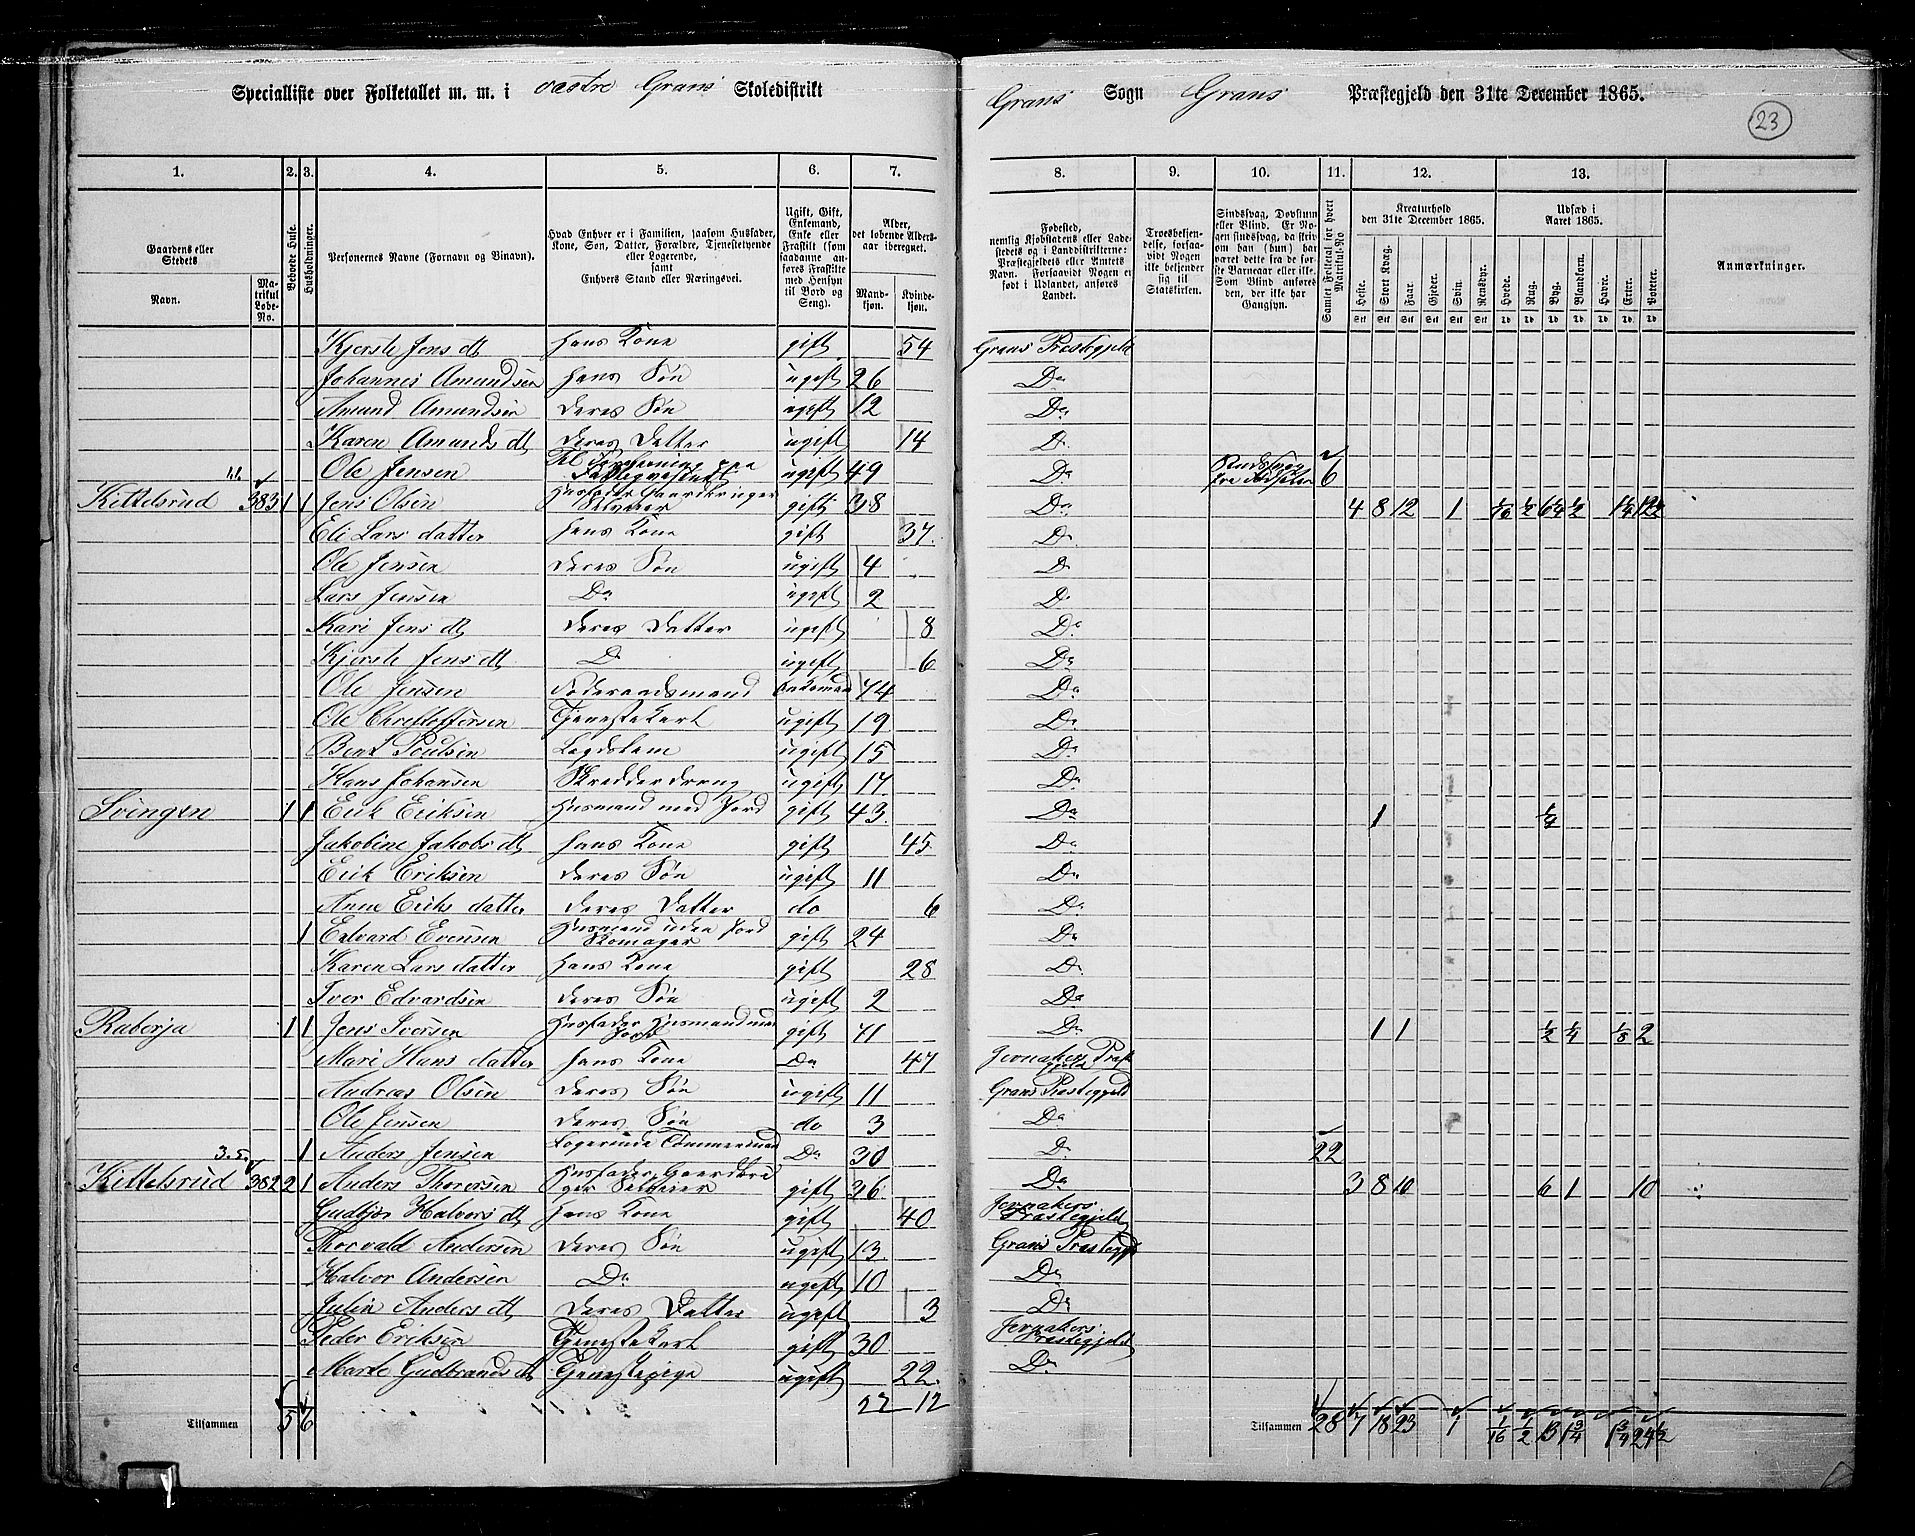 Specialliste over Folketallet m. m. i vestre Grans Skoledistrikt
Grans Sogn Grans Præstegjeld den 31te December 1865.
23
1. 2. 3. 4. 5. 6. 7. 8. 9. 10. 11. 12. 13.
Gaardens eller Stedets
Navn.
Matrikul Løbe-No.
Beboede Huse.
Husholdninger.
Personernes Navne (Fornavn og Binavn).
Hvad Enhver er i Familien, saasom Husfader, Kone, Søn, Datter, Forældre, Tjenestetyende eller Logerende,
samt
Enhvers Stand eller Næringsvei.
Ugift, Gift, Enkemand, Enke eller Fraskilt (som saadanne anføres Fraskilte med Hensyn til Bord og Seng).
Alder, det løbende Alders-aar iberegnet.
Mandkjøn. Kvindekjøn.
Fødested,
nemlig Kjøbstadens eller Ladestedets og i Landdistrikterne: Præstegjeldets eller Amtets Navn. Forsaavidt Nogen er født i Udlandet, anføres Landet.
Troesbekjendelse, forsaavidt Nogen ikke bekjender sig til Statskirken.
Sindssvag, Døvstum eller Blind. Er Nogen sindssvag, da skrives om han (hun) har været dette fra de første Barneaar eller ikke. Som Blind anføres den, der ikke har Gangsyn.
Samlet Folketal for hvert Matrikul-No
Kreaturhold den 31te December 1865.
Heste. Stort Kvæg. Faar. Gjeder. Svin. Rensdyr.
Udsæd i Aaret 1865.
Hvede. Rug. Byg. Blandkorn. Havre. Erter. Poteter.
Anmærkninger.
Kjerste Jens dt hans Kone gift 54 Grans Præstegjeld
Johannes Amundsen hans Søn ugift 26 Do
Amund Amundsen deres Søn ugift 12 Do
Karen Amunds dt deres Datter ugift 14 Do
Ole Jensen ugift 49 Do 6
Kittelsrud 383 1 1 Jens Olsen Husfader Gaardbruger Selveier gift 38 Do 4 8 12 1
Eli Lars datter hans Kone gift 37 Do
Ole Jensen deres Søn ugift 4 Do
Lars Jensen Do ugift 2 Do
Kari Jens dt deres Datter ugift 8 Do
Kjerste Jens dt Do ugift 6 Do
Ole Jensen Føderaadsmand Enkemand 74 Do
Ole Christoffersen Tjenestekarl ugift 19 Do
Bent Poulsen Legdslem ugift 15 Do
Hans Johansen Skredderdreng ugift 17 Do
Svingen 1 1 Erik Eriksen Husmand med Jord gift 43 Do 1 1/4
Jakobine Jakobs dt hans Kone gift 45 Do
Erik Eriksen deres Søn ugift 11 Do
Anne Eriks datter deres Datter do 6 Do
1 Edvard Evensen Husmand uden Jord Skomager gift 24 Do
Karen Lars datter hans Kone gift 28 Do
Iver Edvardsen deres Søn ugift 2 Do
Raberja 1 1 Jens Iversen Husfader Husmand med Jord gift 41 Do 1 1 1/2 1/4 1/8 2
Mari Hans datter hans Kone Do 47 Jevnakers Præstegjeld
Andreas Olsen deres Søn ugift 11 Grans Præstegjeld
Ole Jensen deres Søn do 3 Do
1 Anders Jensen Logerende Tømmermand Do 30 Do 22
Kittelsrud 382 2 1 Anders Thoresen Husfader Gaardbruger Selveier gift 36 Do 3 8 10 6 1 10
Gudbjør Halvors dt hans Kone gift 40 Jevnakers Præstegjeld
Thorvald Andersen deres Søn ugift 13 Grans Præstegjd
Halvor Andersen Do ugift 10 Do
Julin Anders dt deres Datter ugift 3 Do
Peder Eriksen Tjenestekarl gift 30 Jevnakers Præstegjeld
Marte Gudbrands dt Tjenestepige ugift 22 Do
Tilsammen 5 6 22 12 Tilsammen 28 7 18 23 1 1/16 1/2 13 1 3/4 1 3/4 24 1/2